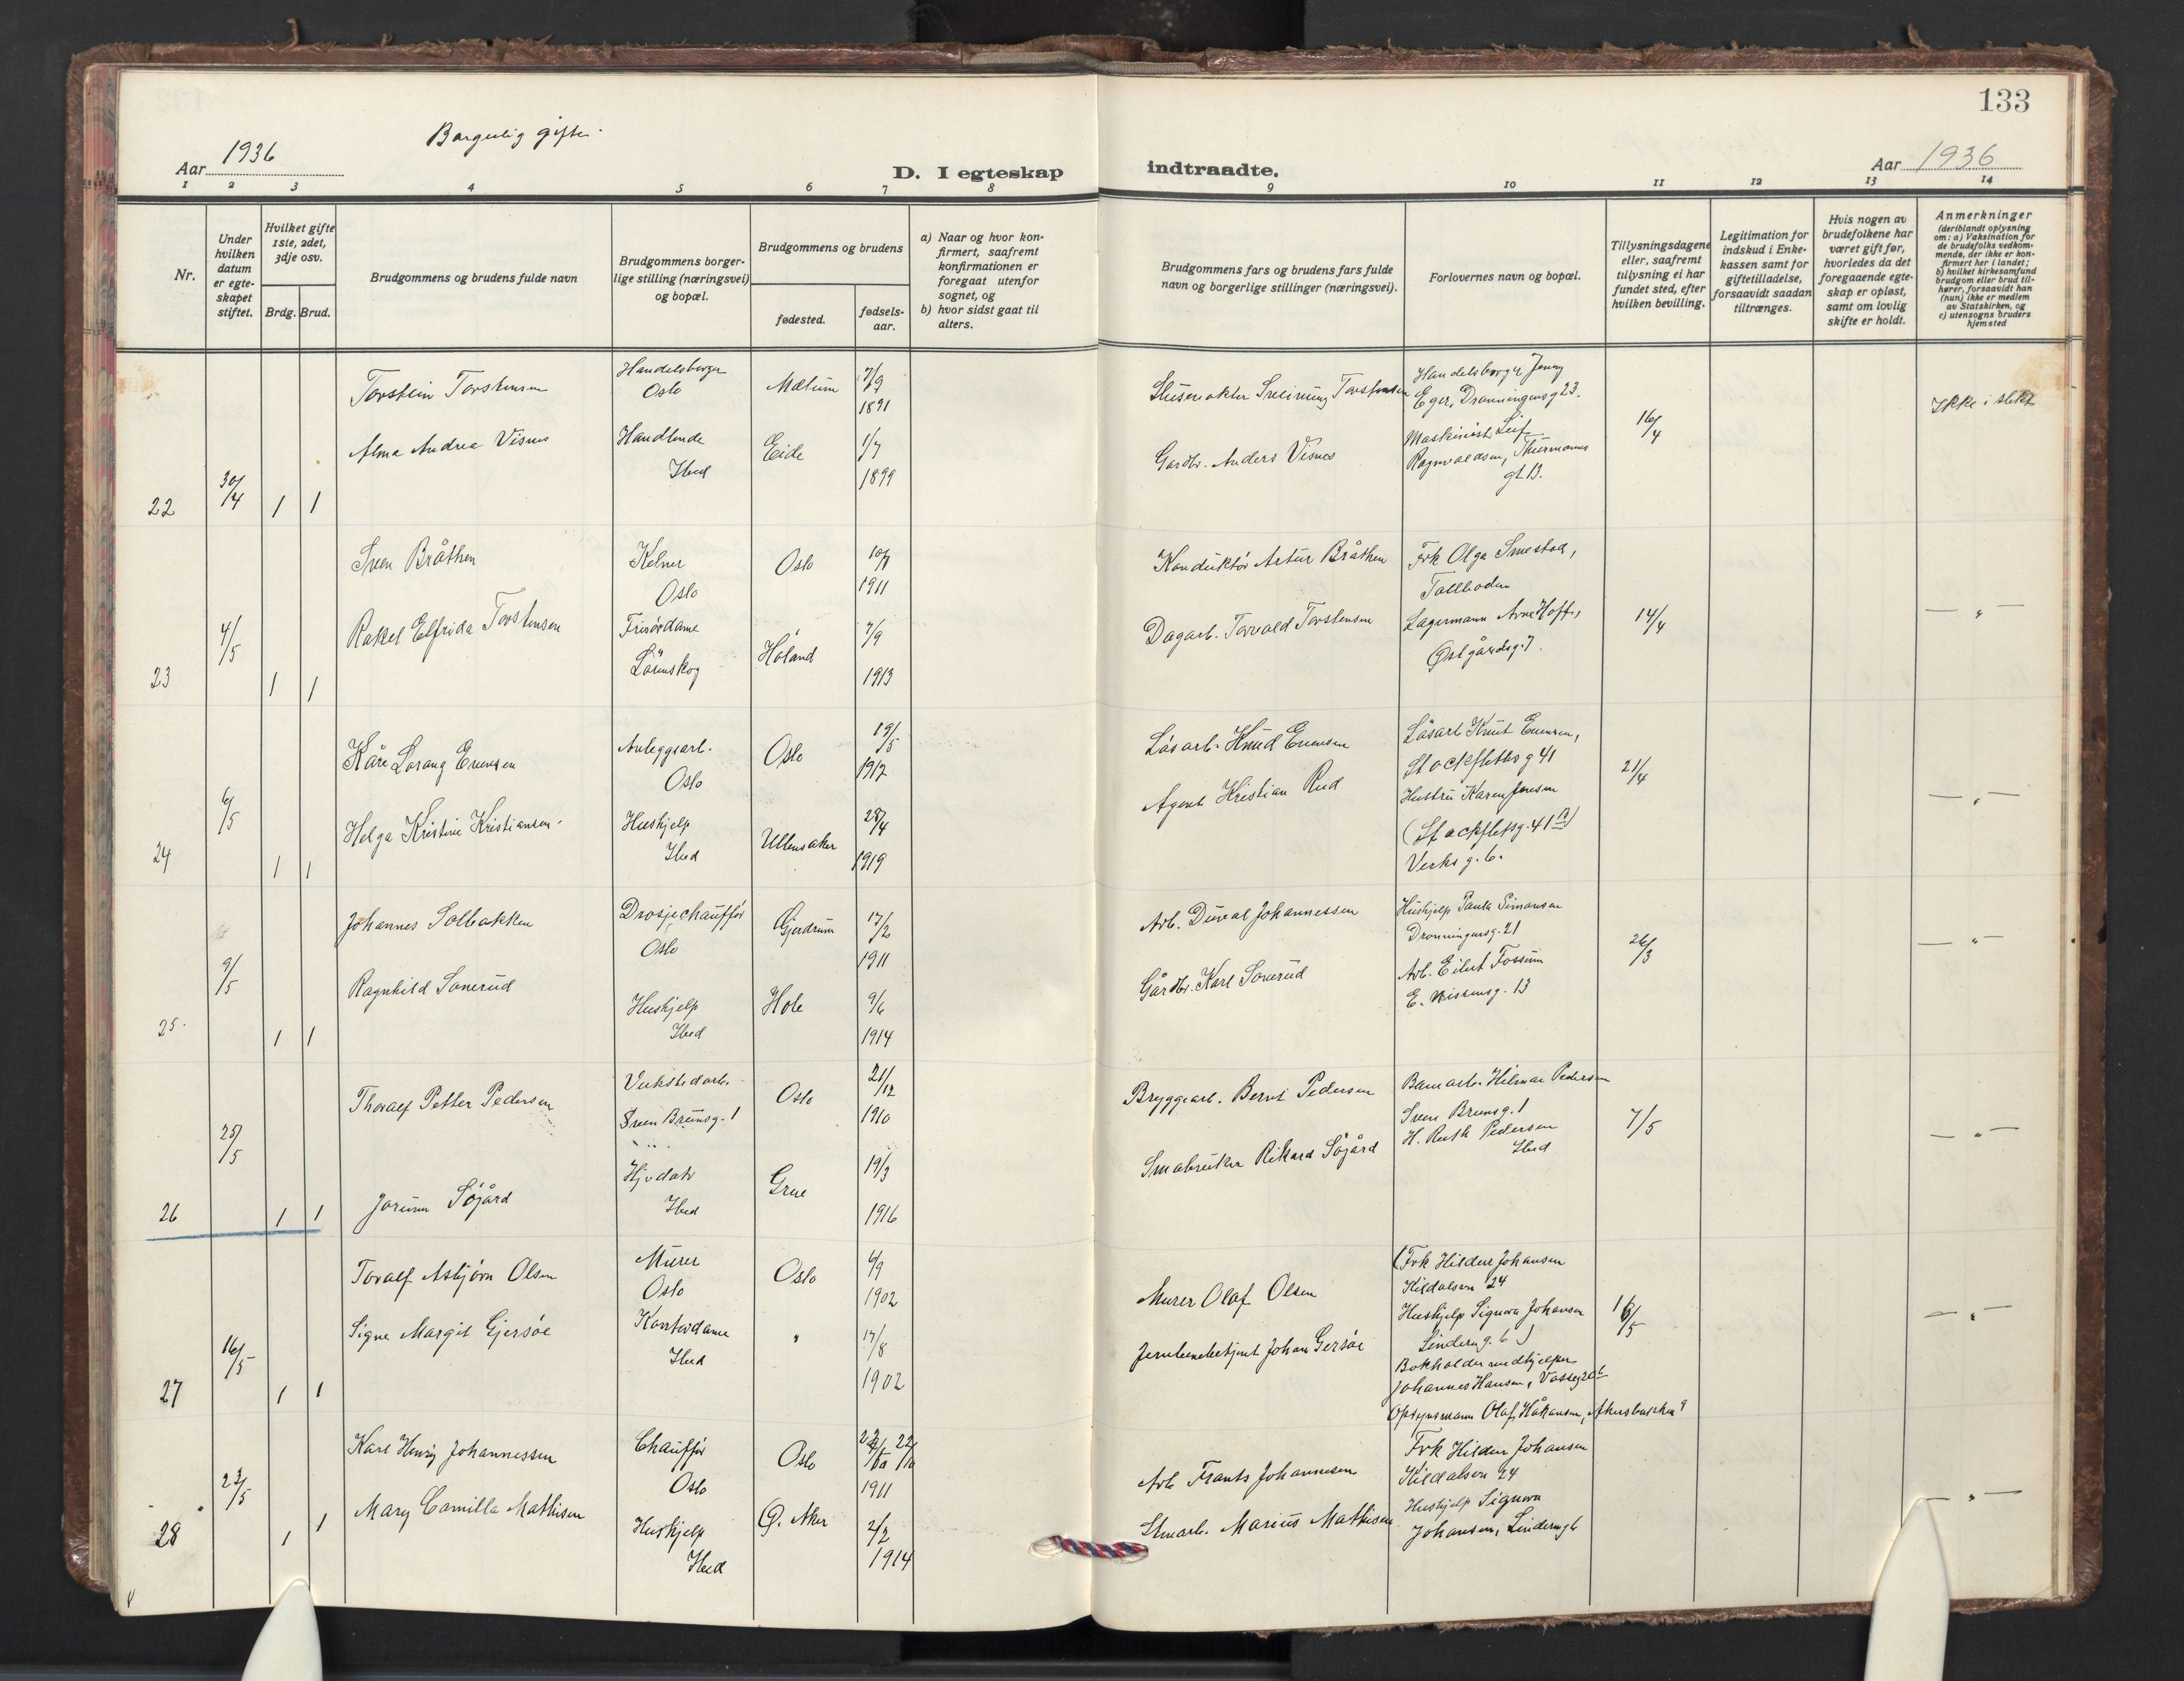 133
Aar 1936
Borgerlig gifte
D. I egteskap
indtraadte.
Aar 1936
1 2 3 4 5 6 7 8
9 10 11 12 13 14
Nr.
Under hvilken datum er egteskapet stiftet.
Hvilket gifte 1ste, 2det, 3dje osv.
Brdg. Brud.
Brudgommens og brudens fulde navn
Brudgommens borgerlige stilling (næringsvei) og bopæl.
Brudgommens og brudens
fødested.
fødselsaar.
a) Naar og hvor konfirmert, saafremt konfirmationen er foregaat utenfor sognet, og
b) hvor sidst gaat til alters.
Brudgommens fars og brudens fars fulde navn og borgerlige stillinger (næringsvei).
Forlovernes navn og bopæl.
Tillysningsdagene eller, saafremt tillysning ei har fundet sted, efter hvilken bevilling.
Legitimation for indskud i Enkekassen samt for giftetilladelse, forsaavidt saadan tiltrænges.
Hvis nogen av brudefolkene har været gift før, hvorledes da det foregaaende egteskap er opløst, samt om lovlig skifte er holdt.
Anmerkninger (deriblandt oplysning om: a) Vaksination for de brudefolks vedkommende, der ikke er konfirmert her i landet; b) hvilket kirkesamfund brudgom eller brud tilhører, forsaavidt han (hun) ikke er medlem av Statskirken, og c) utensogns bruders hjemsted
22 30/4 1 1
Torstein Torstensen
Handelsborger
Oslo
Mælum
7/9
1891
Torstensen
Handelsborger Jenny
Eger, Dronningensg 23.
16/4
Ikke i slekt
Alma Andrea Visnes
Handlende
Ibid
Eide
1/7
1899
Gardbr. Anders Visnes
Maskinist Leif
Ragnvaldsen, Thurmanns
gt. 13.
23 4/5 1 1
Sven Bråthen
Kelner
Oslo
Oslo
1911
Konduktör Artur Bråthen
Frk Olga Smestad,
Tollboden
14/4
— " —
Rakel Elfrida Torstensen
Frisördame
Lörenskog
Höland
7/9
1913
Dagarb. Torvald Torstensen
Lagermann Arne Hoff,
Østgårdsg. 7.
24 6/5 1 1
Kåre Lorang Evensen
Anleggsarb.
Oslo
Oslo
19/5
1912
Lösarb. Knud Evensen
Lösarb Knut Evensen,
Stockfletbsg 41
21/4
— " —
Helga Kristine Kristiansen
Hushjelp
Ibid
Ullensaker
28/4
1919
Agent Kristian Rud
Hustru Karen Jensen
(Stockfletsg. 41 B)
Verksg. 6.
25. 9/5 1 1
Johannes Solbakken
Drosjechauffør
Oslo
Gjerdrum
17/2
1911
Arb. Johannessen
Hushjelp Paula Simonsen
Dronningensg. 21
26/3
— " —
Ragnhild Sonerud
Hushjelp
Ibid
Hole
9/6
1914
Gårdbr. Karl Sonerud
Arb. Eilert Fossum
E. Nissensg. 13
26 25/5 1 1
Thoralf Petter Pedersen
Verkstedarb.
Sven Brunsg. 1
Oslo
21/12
1910
Bryggearb. Bernt Pedersen
Hilmar Pedersen
Sven Brunsg. 1
7/5
— " —
Jorunn Söjård
Ibid
Grue
19/3
1916
Småbruker Rikard Söjård
H. Ruth Pedersen
Ibid
27 16/5 1 1
Toralf Asbjørn Olsen
Murer
Oslo
Oslo
6/9
1902
Murer Olaf Olsen
(Frk Hildur Johansen
Kildalsvn 24
— " —
Signe Margit Gjersøe
Kontordame
Ibid
"
17/8
1902
Johan Gersøe
Hushjelp Signora Johansen
Linderng. 6)
Bokholder
Johannes Hansen,
Opsynsmann Olaf Håkansen,
28 23/5 1 1
Karl Henry Johannessen
Chauffør
Oslo
Oslo
22/10
1911
Arb Frants Johannesen
Frk Hildur Johansen
Kildalsvn 24
— " —
Mary Camilla Mathisen
Hushjelp
Ibid
Ø. Aker
2/2
1914
Marius Mathisen
Hushjelp Signora
Johansen, Linderng 6